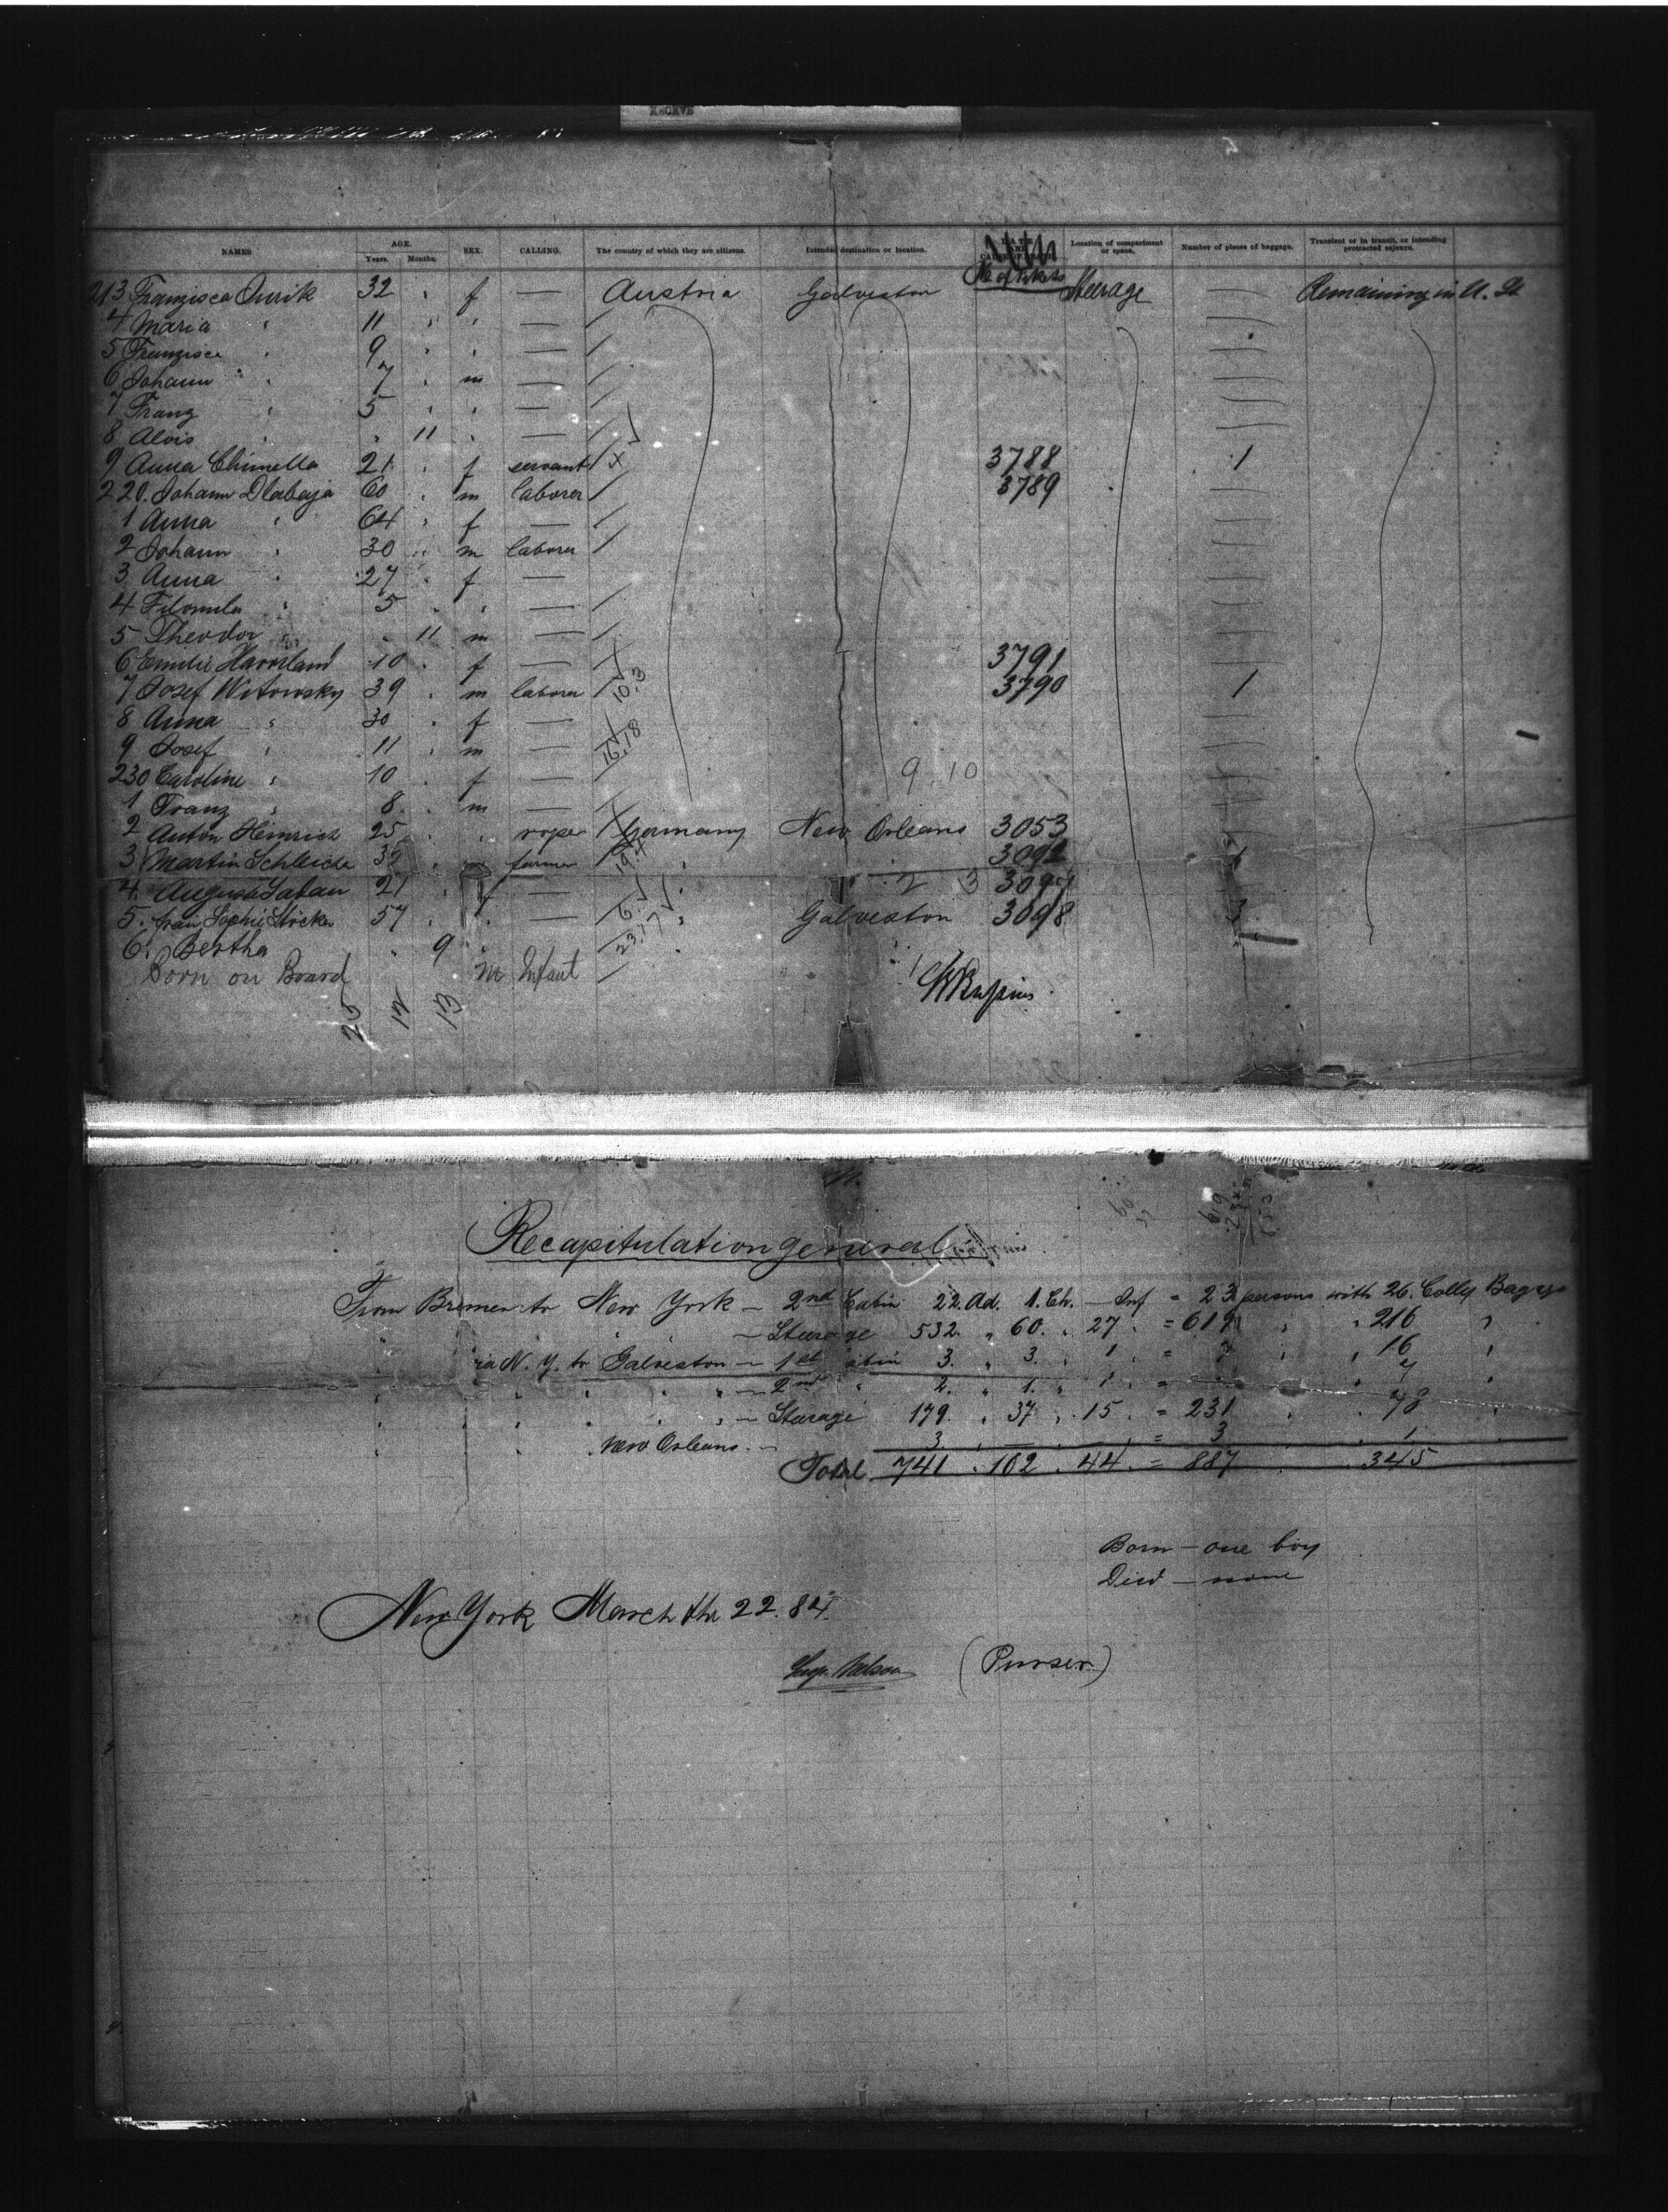 NAMES AGE. Years. Months. SEX. CALLING. The country of which they are citizens. Intended destination or location. No of Tickets Location of compartment or space. Number of pieces of baggage. Transient or in transit, or intending protracted sojourn.
213 Franzisca 32 " f — Austria Galveston Steerage — Remaining in U. St
4 Maria " 11 " " — /
5 Franzisca " 9 " " — /
6 Johann " 7 " m — /
7 Franz " 5 " " — /
8 Alois " " 11 " — /
9 Anna Chmella 21 " f servant / x 3788 1
220. Johann Dlabaja 60 " m laborer / 3789
1 Anna " 64 " f — /
2 Johann " 30 " m laborer /
3 Anna " 27 " f —
4 " 5 " " — /
5 Theodor " " 11 m — /
6 Emilie 10 " f — 3791
7 Josef Witowsky 39 " m laborer / 10.3 3790 1
8 Anna " 30 " f —
9 Josef " 11 " m — 16.18
230 Caroline " 10 " f — / 9 10
1 Franz " 8 " m — /
2 Anton Heinrich 25 " " / Germany New Orleans 3053
3 Martin 32 " m farmer / " " 3092
4. Auguste 21 " f — / 2 3
5. Sophie 57 " " — / " Galveston 3098 3
6. Bertha " 9 " /
Born on Board M Infant /
25 12 13
Recapitulation general
From Bremen to New York — 2nd Cabin 22. Ad. 1. Ch. — Inf = 23 persons with 26. Colly Bagage
" " — Steerage 532. " 60. " 27 " = 619 " " 216 "
via N. Y. to Galveston — 1st Cabin 3. " 3. " 1 " = 7 " " 16 "
" " " " " — 2nd " 2. " 1. " 1 " = " " "
" " " " " — Steerage 179. " 37 " 15 " = 231 " " 78 "
" " New Orleans. — 3. " — " = 3 " " 1 "
Total 741 " 102 " 44 " = 887 " " 345
Born — one boy
Died — none
New York March the 22. 84.
(Purser.)